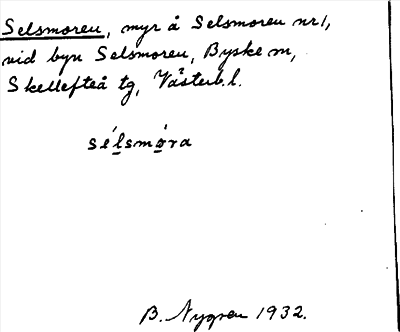 Selsmoren, myr å Selsmoren nr 1,
vid byn Selsmoren, Byske sn,
Skellefteå tg, Västerb. l.
sélsmòra
B. Nygren 1932.